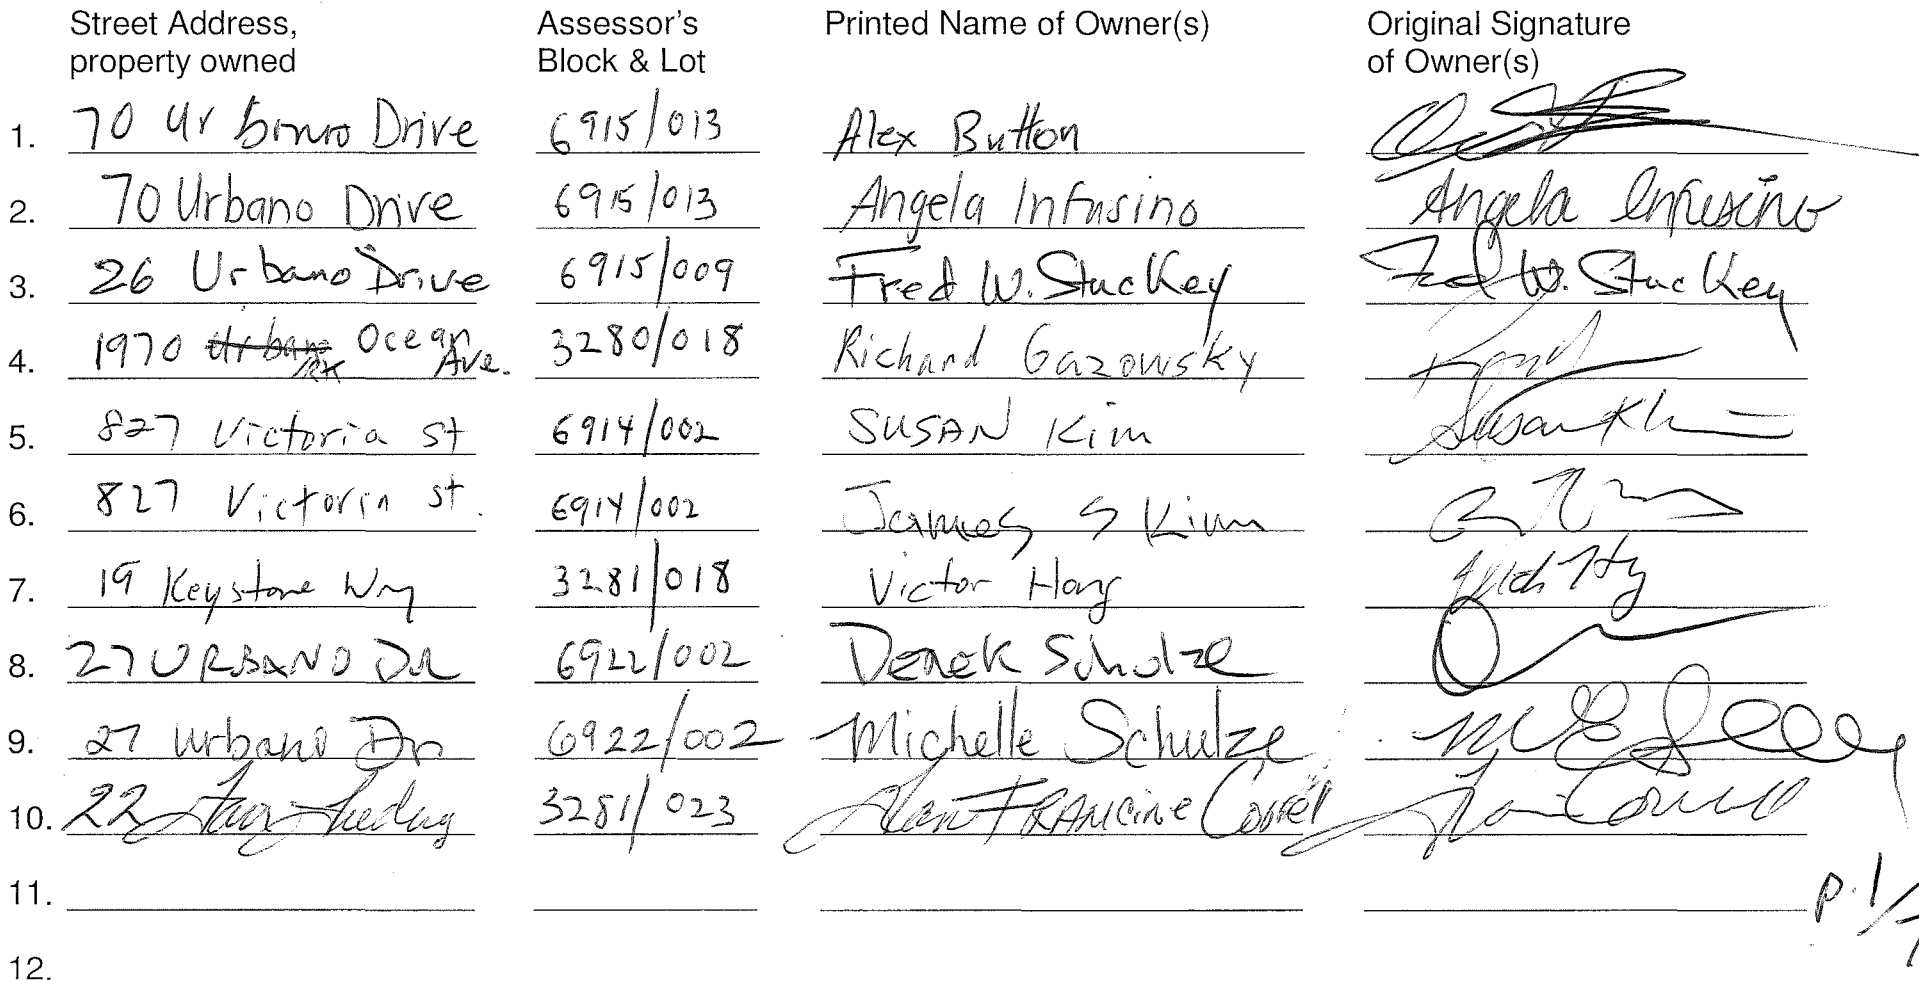 Street Address, property owned Assessor's Block & Lot Printed Name of Owner(s) Original Signature of Owner(s)
1. 70 Urbano Drive 6915/013 Alex Button
2. 70 Urbano Drive 6915/013 Angela Infusino Angela Infusino
3. 26 Urbano Drive 6915/009 Fred W. Stuckey Fred W. Stuckey
4. 1970 Urbano Ocean Ave. 3280/018 Richard Gazowsky
5. 827 Victoria st 6914/002 SUSAN Kim Susan Kim
6. 827 Victoria st. 6914/002 James S Kim
7. 19 Keystone Way 3281/018 Victor Hong
8. 27 URBANO DR 6922/002 Derek Schulze
9. 27 Urbano Dr. 6922/002 Michelle Schulze
10. 22 3281/023 FRANCINE
11.
p. 1/
12.